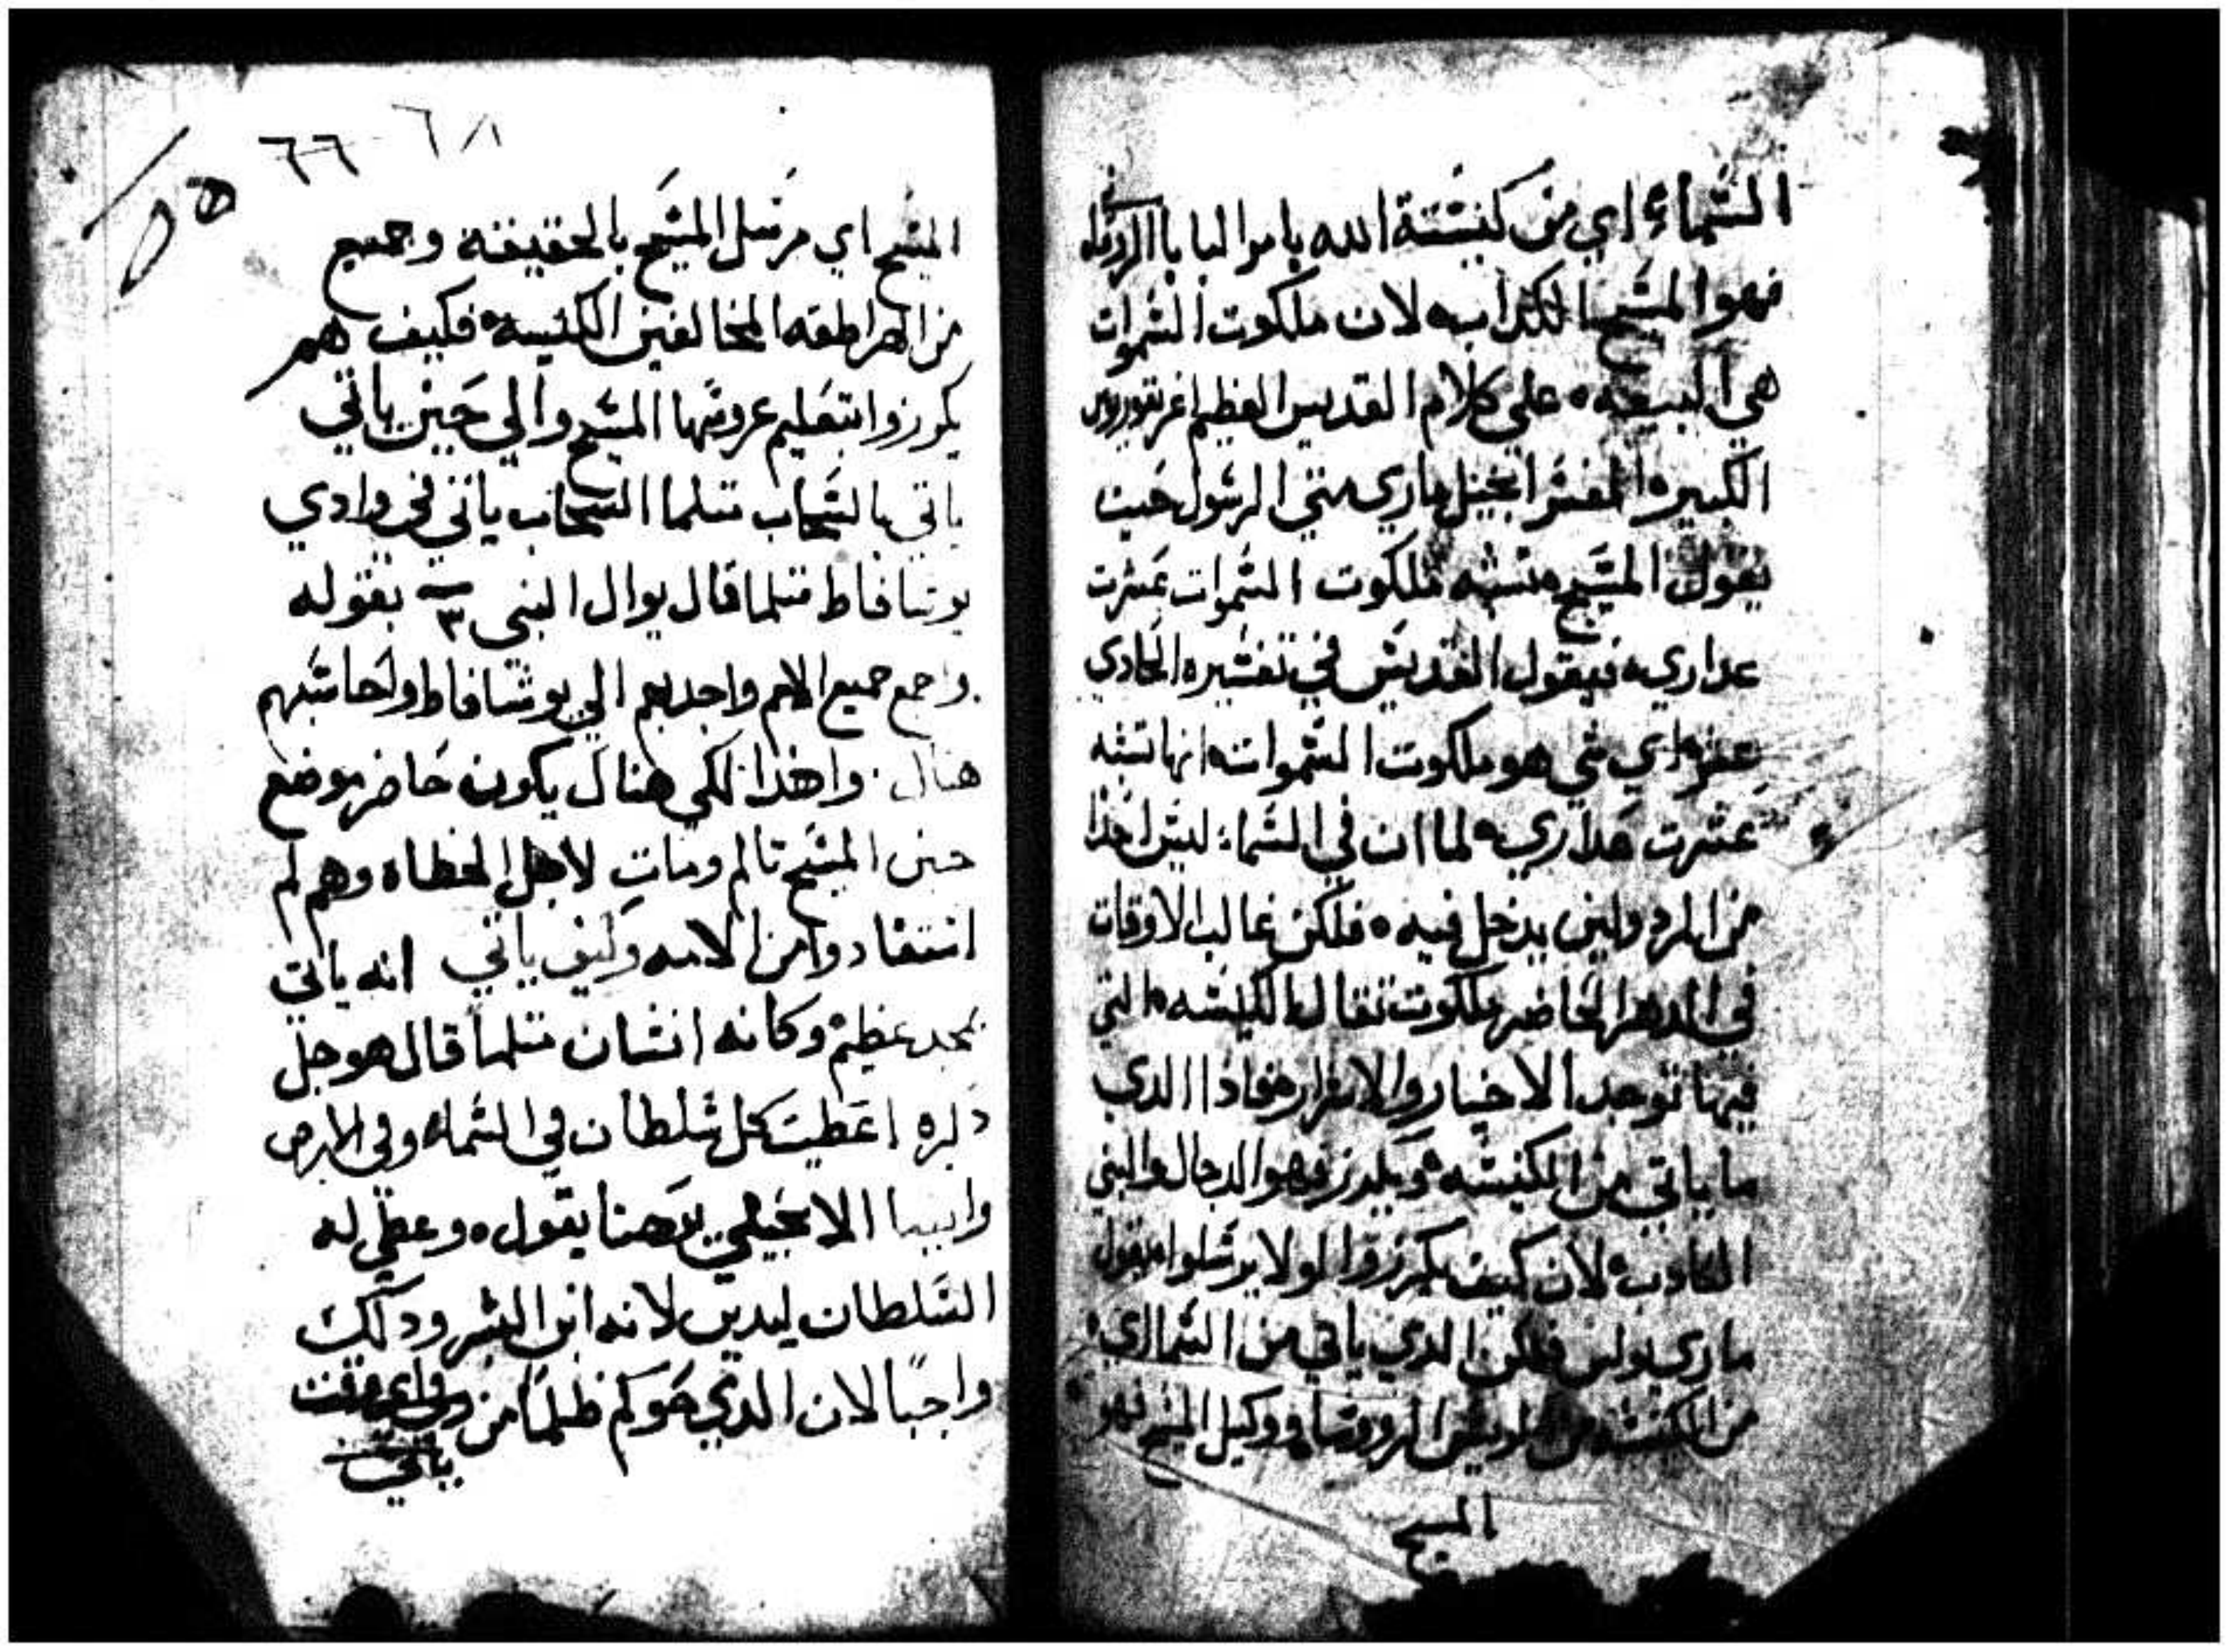 السماء اي من كنيسة الله بامر البابا الروماني
فهو المسيح الكداب لان ملكوت السموات
هي البيعه على كلام القديس العظيم اغريغوريوس
الكبير المفسر انجيل ماري متي الرسول حيث
يقول المسيح تشبه ملكوت السموات عشرت
عداري فيقول القديس في تفسيره الحادي
عشر اي شي هو ملكوت السموات انها تشبه
عشرت عداري لما ان في السماء ليس احدًا
من المردولين يدخل فيه فلكن غالب الاوقات
في الدهر الحاضر ملكوت تقال الكنيسه التي
فيها توجد الاخيار والاشرار فادا الدي
ما ياتي من الكنيسه ويكرز فهو الدجال والنبي
الكادب لان كيف يكرزوا لو لا يرسلوا يقول
ماري بولس فلكن الدي ياتي من السما اي
من الكنيسه من الروماني ووكيل المسيح فهو
المسيح
٦٦ ٦٨
٥٥
المسيح اي مرسل المسيح بالحقيقه وجميع
من الهراطقه المخالفين الكنيسه فكيف هم
يكرزوا بتعليم عروسها المسيح والي حين ياتي
ياتي بالسحاب متلما السحاب ياتي في وادي
يوشافاط متلما قال يوال النبي ٣ بقوله
واجمع جميع الامم واجدبهم الي يوشافاط ولحاسبهم
هناك واهدا لكي هناك يكون حاضر موضع
حيث المسيح تالم ومات لاجل الخطاه وهم لم
انتفادوا من الامه وكيف ياتي انه ياتي
بمجد عظيم وكانه انسان متلما قال هو جل
دكره اعطيت كل سلطان في السماء وفي الارض
وايضا الانجيلي يوحنا يقول وعطي له
السلطان ليدين لانه ابن البشر ودلك
واجبًا لان الدي حوكم ظلمًا من وفي اي وقت
ياتي